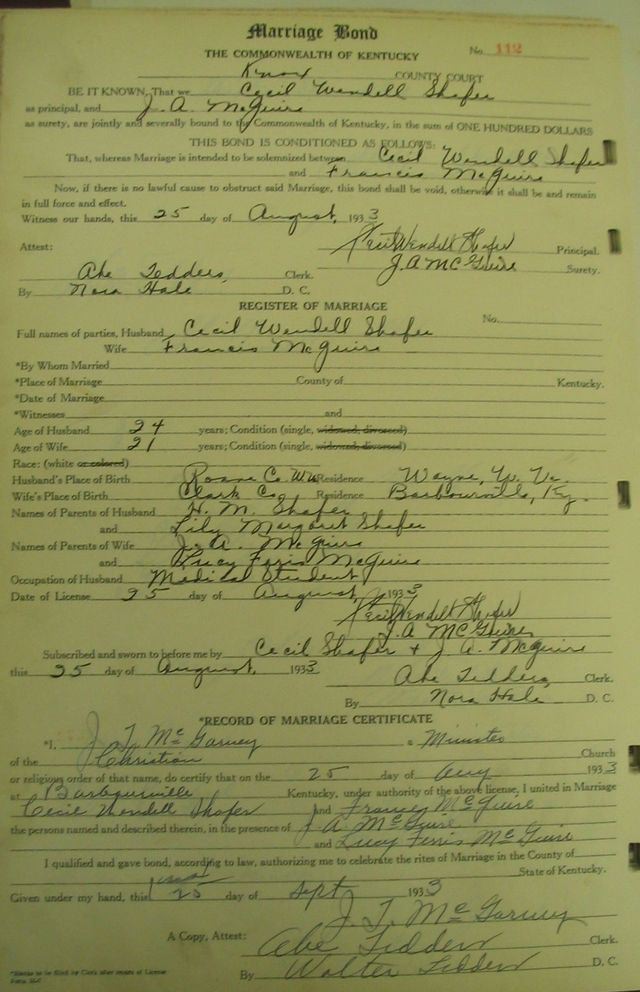 Marriage Bond
THE COMMONWEALTH OF KENTUCKY No. 112
Knox COUNTY COURT
BE IT KNOWN, That we Cecil Wendell Shafer
as principal, and J. A. McGuire
as surety, are jointly and severally bound to the Commonwealth of Kentucky, in the sum of ONE HUNDRED DOLLARS
THIS BOND IS CONDITIONED AS FOLLOWS:
That, whereas Marriage is intended to be solemnized between Cecil Wendell Shafer
and Francis McGuire
Now, if there is no lawful cause to obstruct said Marriage, this bond shall be void, otherwise it shall be and remain
in full force and effect.
Witness our hands, this 25 day of August, 1933
Attest: Cecil Wendell Shafer Principal.
J. A McGuire Surety.
Abe Tedders, Clerk.
By Nora Hale D. C.
REGISTER OF MARRIAGE
No.
Full names of parties, Husband Cecil Wendell Shafer
Wife Francis McGuire
*By Whom Married
*Place of Marriage County of Kentucky.
*Date of Marriage
*Witnesses and
Age of Husband 24 years; Condition (single, widowed, divorced)
Age of Wife 21 years; Condition (single, widowed, divorced)
Race: (white or colored)
Husband's Place of Birth Roane Co. Residence Wayne, W. Va.
Wife's Place of Birth Clark Co. Residence Barbourville, Ky.
Names of Parents of Husband H. M. Shafer
and Lily Margaret Shafer
Names of Parents of Wife J. A. McGuire
and Lucy Ferris McGuire
Occupation of Husband Medical Student
Date of License 25 day of August, 1933
Cecil Wendell Shafer
J. A McGuire
Subscribed and sworn to before me by Cecil Shafer + J. A. McGuire
this 25 day of August, 1933
Abe Tedders, Clerk.
By Nora Hale D. C.
*RECORD OF MARRIAGE CERTIFICATE
*I, J. T. McGarvey a Minister
of the Christian Church
or religious order of that name, do certify that on the 25 day of Aug 1933
at Barbourville Kentucky, under authority of the above license, I united in Marriage
Cecil Wendell Shafer and Francis McGuire
the persons named and described therein, in the presence of J. A. McGuire
and Lucy Ferris McGuire
I qualified and gave bond, according to law, authorizing me to celebrate the rites of Marriage in the County of
Knox State of Kentucky.
Given under my hand, this 25 day of Sept 1933
J. T. McGarvey
A Copy, Attest: Abe Tedders Clerk.
By Walter Tedders D. C.
*Blanks to be filled by Clerk after return of License